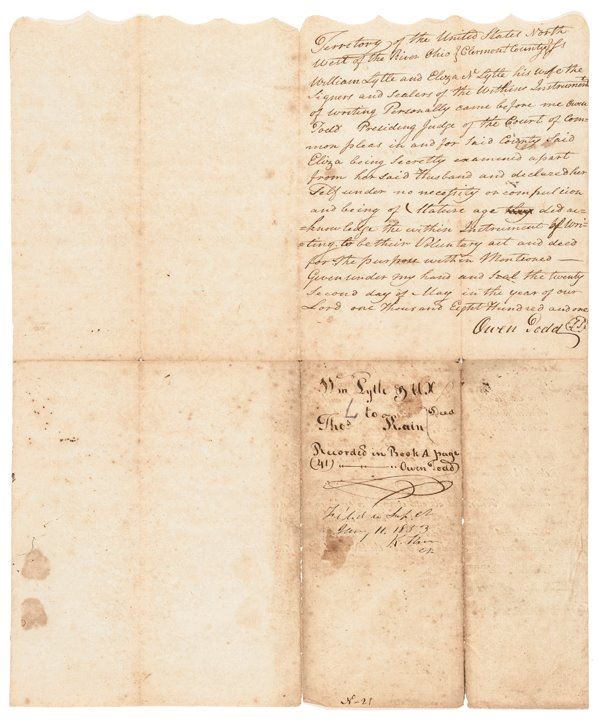 Territory of the United States North
West of the River Ohio { Clermont County } Ss
William Lytle and Eliza N Lytle his wife the
Signers and sealers of the Within Instrument
of writing Personally came before me Owen
Todd Presiding Judge of the Court of Com-
mon pleas in and for said County Said
Eliza being Secretly examined apart
from her said Husband and declared her
Self under no necessity or compulcion
and being of Mature age they did ac-
=knowledge the within Instrument of Wri-
=ting to be their Voluntary act and deed
for the purpose within Mentioned —
Given under my hand and Seal the twenty
Second day of May in the year of our
Lord one Thousand Eight Hundred and one
Owen Todd
Wm Lytle & UX
to
Thos Kain
Recorded in Book A page
(41) Owen Todd
Jany 11. 1853
N-21